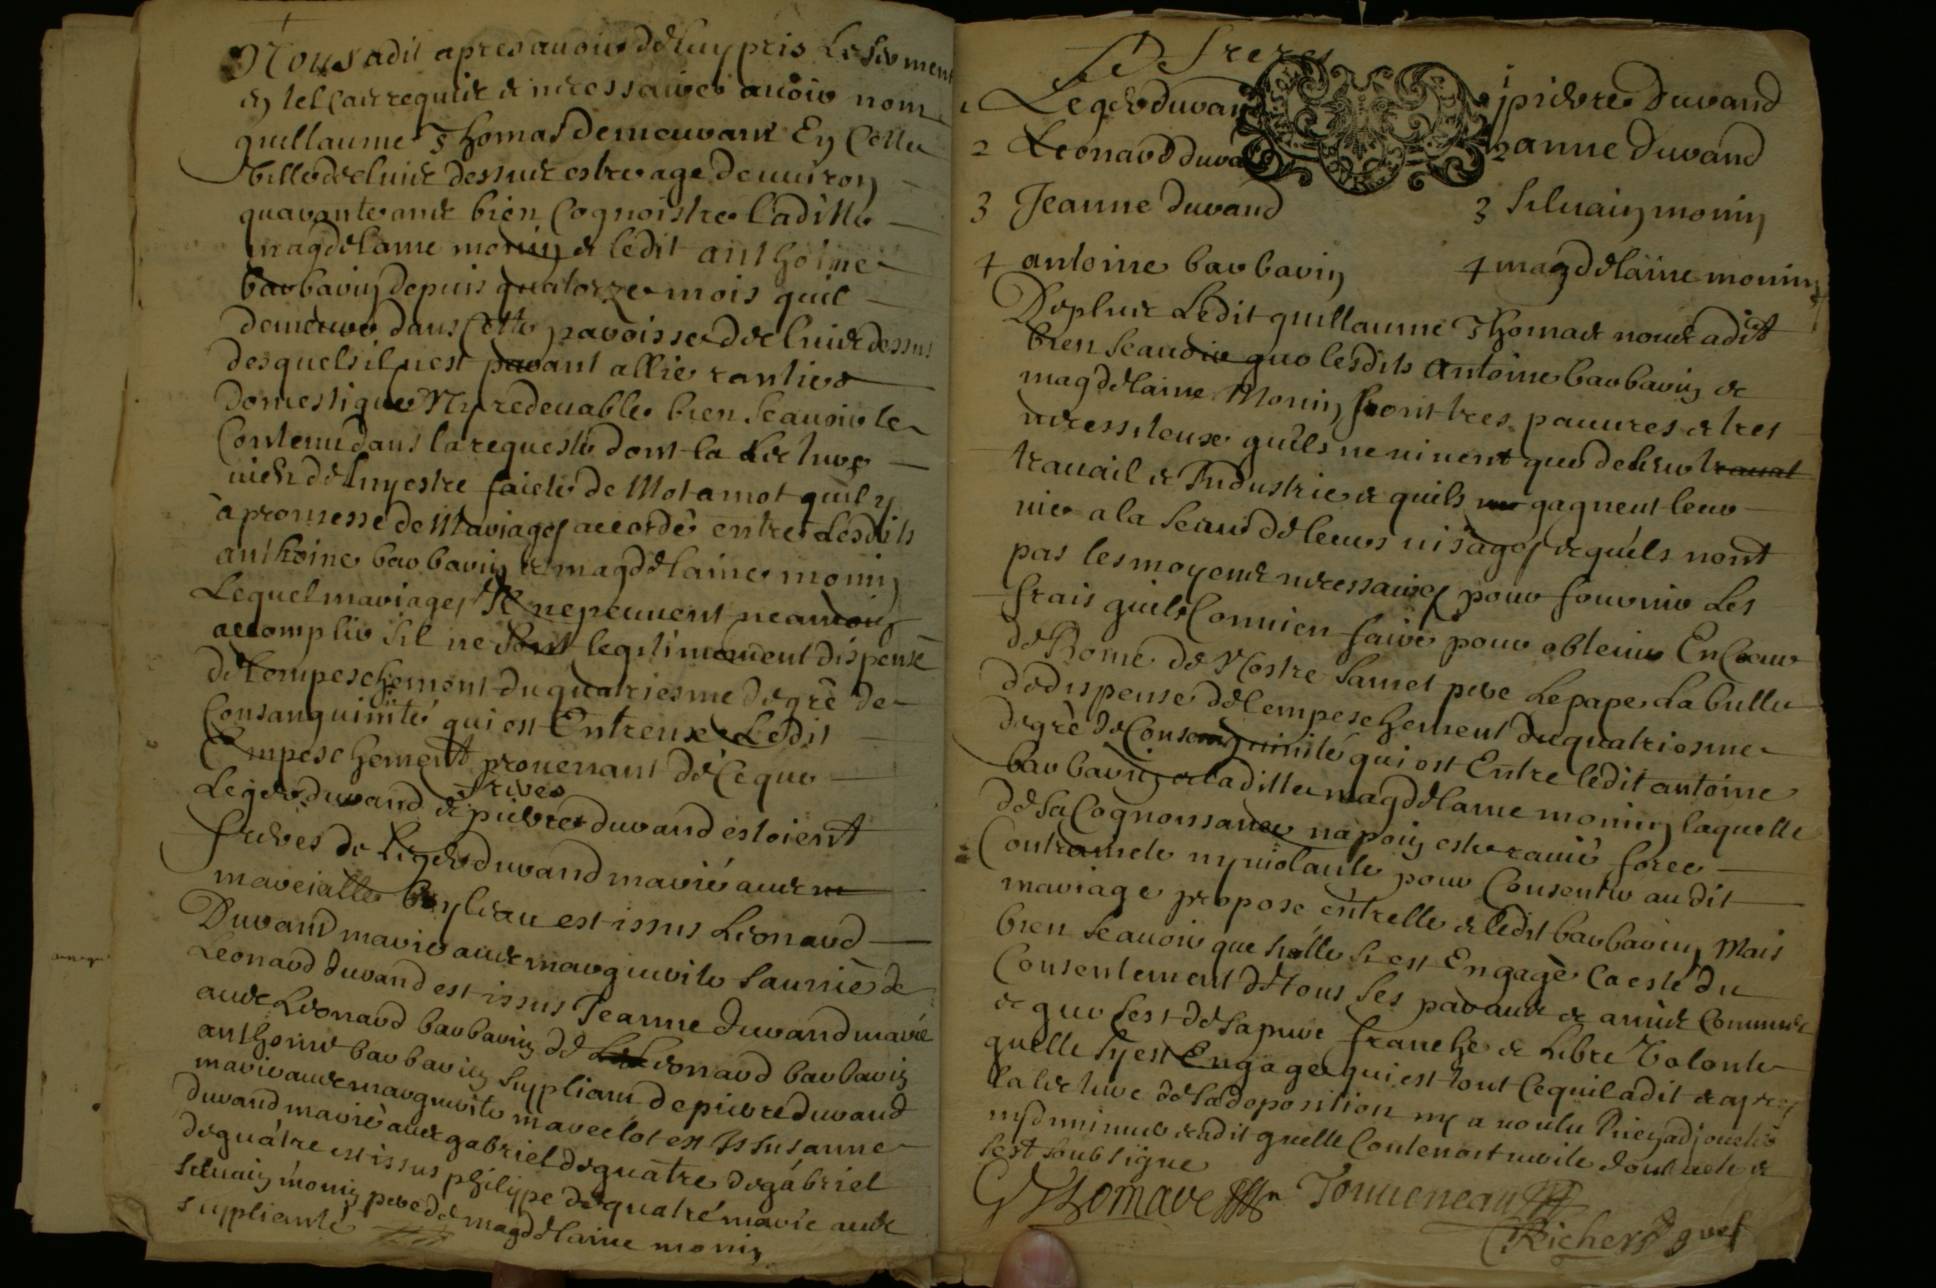 Nous a dit apres auoir de luy pris le serment
en tel cas requis & necessaires auoir nom
guillaume Thomas demeurant En Cette
ville de dessus estre age denuiron
quarante ans bien Cognoistre laditte
magdelaine monin & ledit anthoine
barbarin depuis quatorze mois quil
demeure dans Cette paroisse de dessus
desquels il nest parant allie
domestique Ny redeuable bien scauoir le
Contenu dans la requeste dont la lecture
vient de luy estre faicte de Mot a mot quil y
à promesse de Mariage accordé entre Lesdits
anthoine barbarin & magdelaine monin
Lequel mariage Ne peuuent neanmoins
accomplir sil ne sont legitimement dispensé
de lempeschement du quatriesme degré de
Consanguinité qui est Entreux Ledit
Empeschement prouenant de Ce que
Leger durand & pierre durand estoient
freres
freres de Leger durand marié auec
est issus Leonard
Durand marié auec marguerite de
Leonard durand est issus Jeanne durand marié
auec Leonard barbarin de Leonard barbarin
anthoine barbarin suppliant de pierre durand
marié auec marguerite est Issus anne
durand marié auec gabriel deguatre de gabriel
deguatre est issus philippe deguatre marié auec
siluain monin pere de magdelaine monin
suppliante
Freres
1 Leger duran
1 pierre Durand
2 Leonard dura
2 anne durand
3 Jeanne durand
3 siluain monin
4 antoine barbarin
4 magdelaine monin
De plus Ledit guillaume Thomas nous a dit
bien scauoir que lesdits antoine barbarin &
magdelaine Monin sont tres pauures & tres
necessiteux quils ne viuent que de leur traual
trauail & Industrie & quils gagnent leur
vie a la sceur de leurs visages & quils nont
pas les moyens necessaires pour fournir Les
frais quils Conuien faire pour obtenir En Cour
de Rome de Nostre sainct pere Le pape La bulle
de dispense de lempeschement du quatriesme
degré de Consanguinité qui est Entre ledit antoine
barbarin & laditte magdelaine monin laquelle
de sa Cognoissance na poin este rauie force
Contrainte ny violante pour Consentir au dit
mariage propose entrelle & ledit barbarin Mais
bien scauoir que sielle sest Engagé Ca esté du
Consentement de tous ses parans & amis Communs
& que Cest de sa pure franche & Libre Volonte
quelle sy est Engagé qui est tout Ce quil a dit & apres
la lecture de sa deposition ny a voulu Rien adjouster
ny diminuer & a dit quelle Contenoit verite dont acte &
sest soubsigne
G Thomas Tourneneau
Richer gref